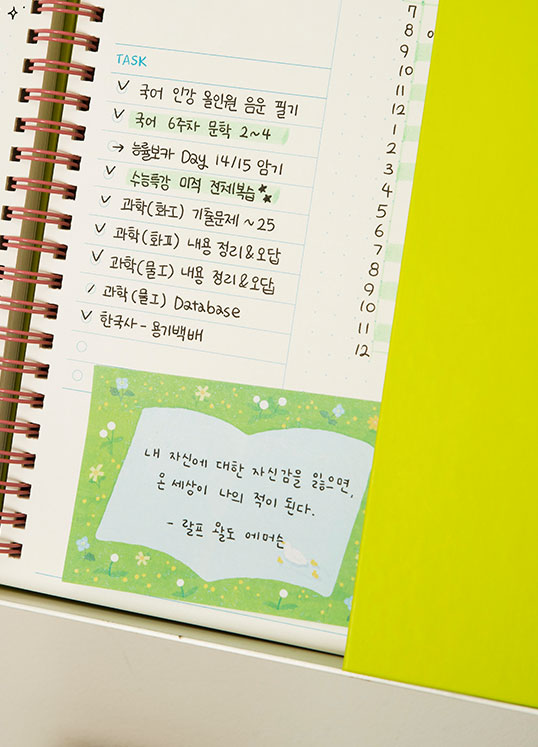 TASK
국어 인강 올인원 음운 필기
국어 6주차 문학 2~4
능률보카 Day 14/15 암기
수능특강 미적 전체복습
과학(화I) 기출문제 ~25
과학(화II) 내용 정리&오답
과학(물I) 내용 정리&오답
과학(물I) Database
한국사 - 용기백배
7
8
9
10
11
12
1
2
3
4
5
6
7
8
9
10
11
12
내 자신에 대한 자신감을 잃으면,
온 세상이 나의 적이 된다.
- 랄프 왈도 에머슨